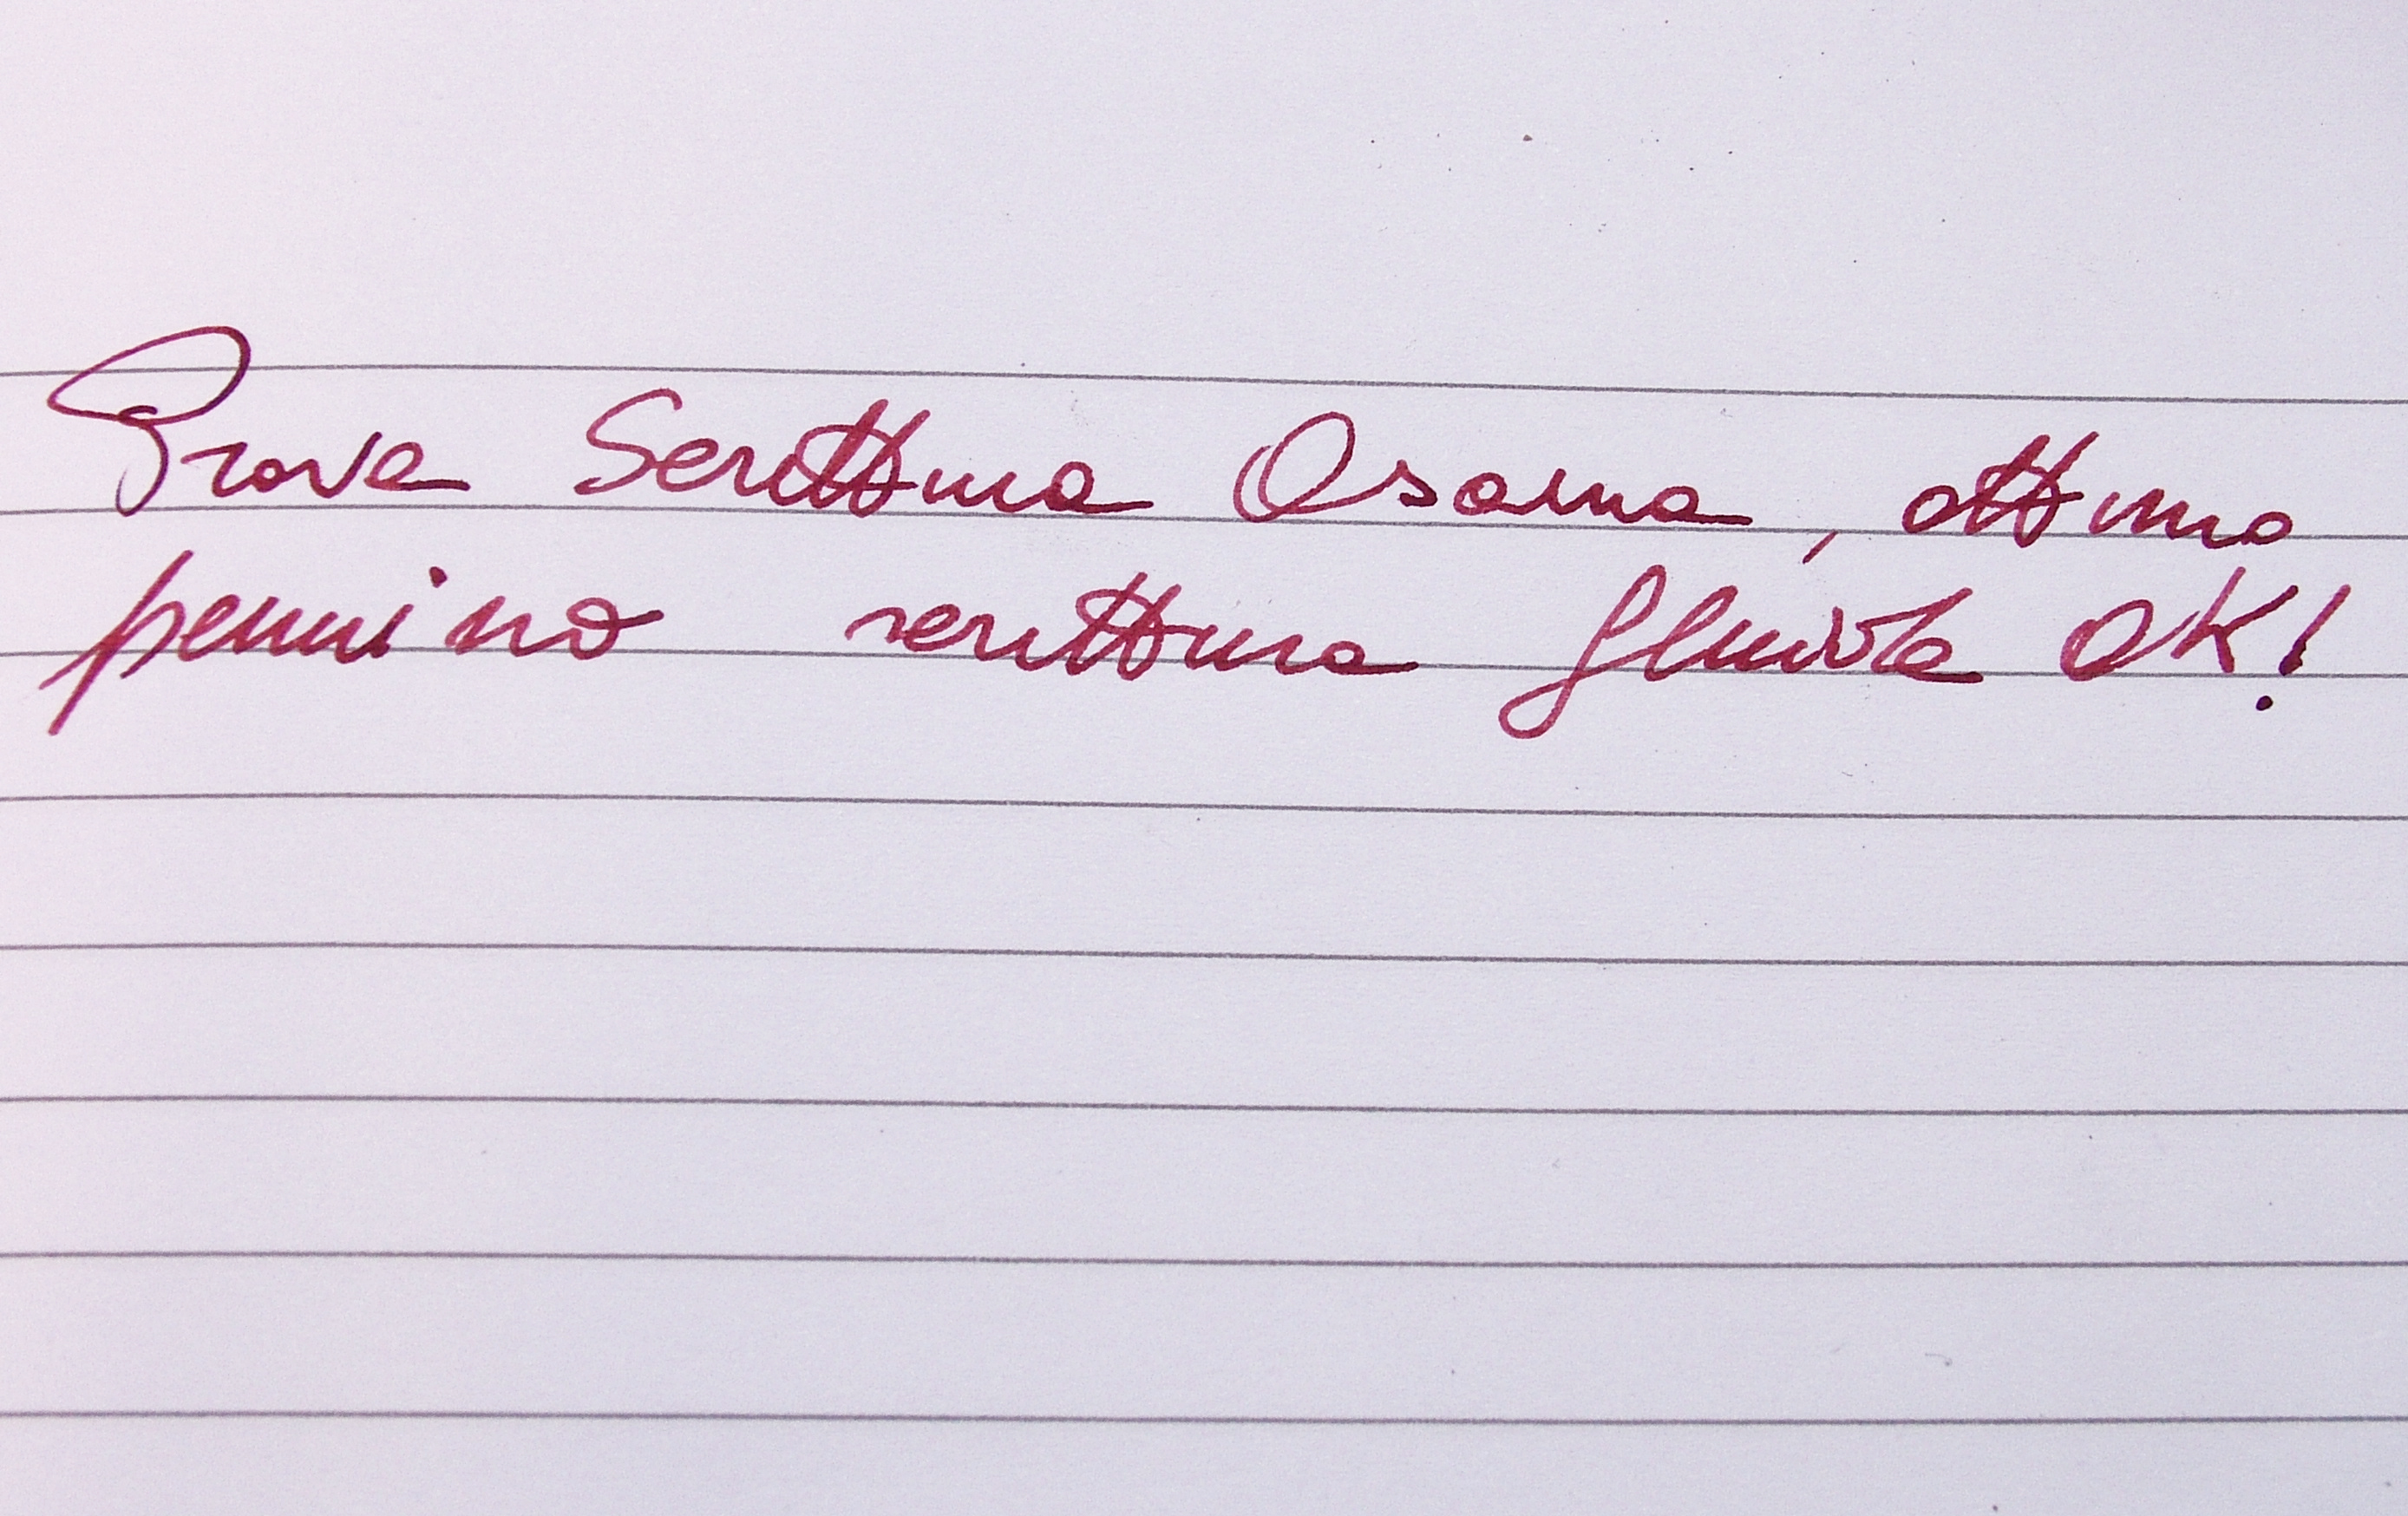 Prova Scrittura Osama, ottimo
pennino scrittura fluida OK!